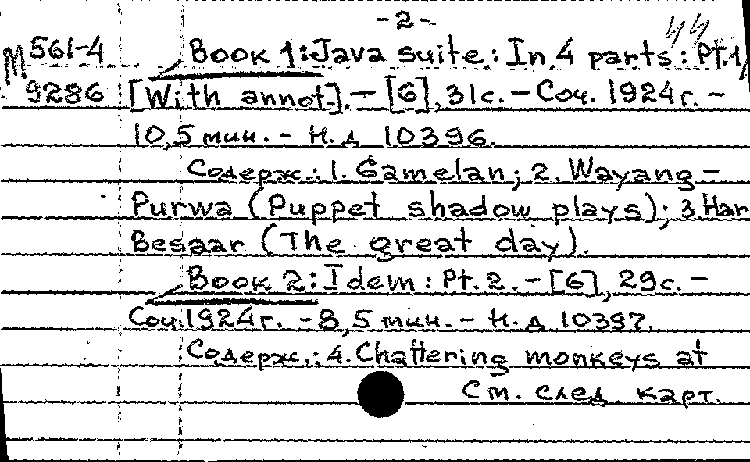 -2-
44
М 561-4 Book 1: Java suite: In 4 parts: Pt.1/
9286 [With annot.]. – [6], 31с. – Соч. 1924г. –
10,5 мин. – Н.д 10396.
Содерж.: 1. Gamelan; 2. Wayang –
Purwa (Puppet shadow plays); 3. Hari
Besaar (The great day).
Book 2: Idem: Pt. 2. – [6], 29с. –
Соч. 1924г. – 8,5 мин. – Н.д 10397.
Содерж.: 4. Chattering monkeys at
См. след. карт.